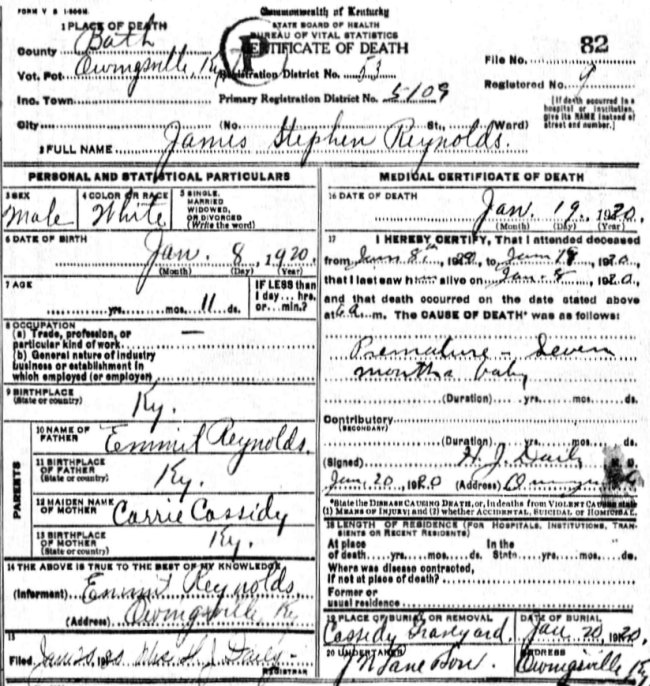 FORM V S 1-500M.
Commonwealth of Kentucky
STATE BOARD OF HEALTH
BUREAU OF VITAL STATISTICS
CERTIFICATE OF DEATH
P
1 PLACE OF DEATH
County Bath
Vot. Pct Owingsville, Ky
Registration District No. 53
Inc. Town
Primary Registration District No. 5109
City (No. St., Ward)
File No. 82
Registered No. 9
[If death occurred in a
hospital or institution,
give its NAME instead of
street and number.]
2 FULL NAME James Stephen Reynolds.
PERSONAL AND STATISTICAL PARTICULARS
3 SEX
Male
4 COLOR OR RACE
White
5 SINGLE,
MARRIED
WIDOWED,
OR DIVORCED
(Write the word)
6 DATE OF BIRTH
Jan. 8, 1920.
(Month) (Day) (Year)
7 AGE
yrs. mos. 11 ds.
IF LESS than
1 day... hrs.
or... min.?
8 OCCUPATION
(a) Trade, profession, or
particular kind of work —
(b) General nature of industry
business or establishment in
which employed (or employer)
9 BIRTHPLACE
(State or country)
Ky.
PARENTS
10 NAME OF
FATHER
Emmit Reynolds.
11 BIRTHPLACE
OF FATHER
(State or country)
Ky.
12 MAIDEN NAME
OF MOTHER
Carrie Cassidy
13 BIRTHPLACE
OF MOTHER
(State or country)
Ky.
14 THE ABOVE IS TRUE TO THE BEST OF MY KNOWLEDGE
(Informant) Emmit Reynolds
(Address) Owingsville, Ky
15
Filed Jan 20, 1920 Mrs. H. J. Daily
REGISTRAR
MEDICAL CERTIFICATE OF DEATH
16 DATE OF DEATH
Jan. 19, 1920.
(Month) (Day) (Year)
17 I HEREBY CERTIFY, That I attended deceased
from Jan 8th, 1920, to Jan 18, 1920,
that I last saw him alive on Jan. 8, 1920,
and that death occurred on the date stated above
at 6 a. m. The CAUSE OF DEATH* was as follows:
Premature - Seven
months baby
(Duration) yrs. mos. ds.
Contributory
(SECONDARY)
(Duration) yrs. mos. ds.
(Signed) H. J. Daily M. D.
Jan. 20, 1920 (Address) Owingsville
*State the DISEASE CAUSING DEATH, or, in deaths from VIOLENT CAUSES state
(1) MEANS OF INJURY; and (2) whether ACCIDENTAL, SUICIDAL OR HOMICIDAL.
18 LENGTH OF RESIDENCE (FOR HOSPITALS, INSTITUTIONS, TRAN-
SIENTS OR RECENT RESIDENTS)
At place In the
of death yrs. mos. ds. State yrs. mos. ds.
Where was disease contracted,
if not at place of death?
Former or
usual residence
19 PLACE OF BURIAL OR REMOVAL
Cassidy Graveyard.
DATE OF BURIAL
Jan 20, 1920.
20 UNDERTAKER
J N Lane Son.
ADDRESS
Owingsville Ky.